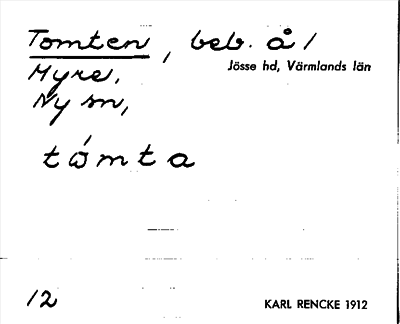 Tomten, beb. å /
Jösse hd, Värmlands län
Myre,
Ny sn,
tómta
12
KARL RENCKE 1912